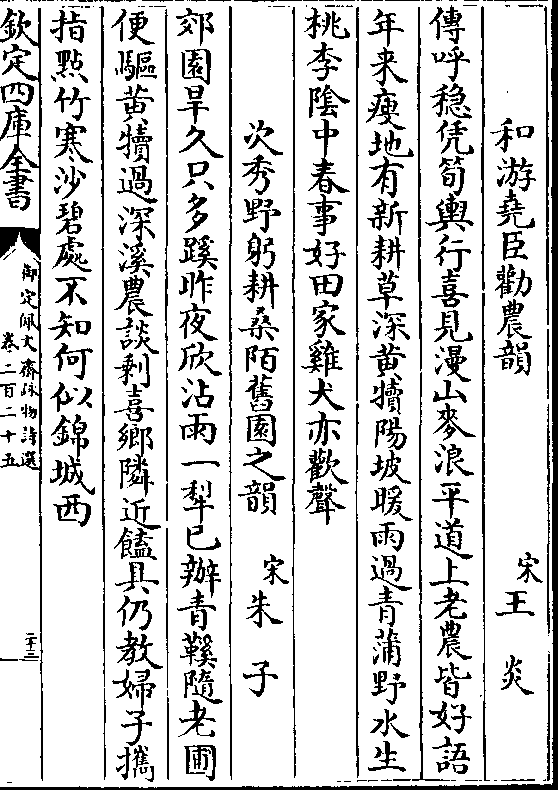 和游堯臣勸農韻
宋王炎
傳呼穩凭筍輿行喜見漫山麥浪平道上老農皆好語
年来瘦地有新耕草深黄犢陽坡暖雨過青蒲野水生
桃李陰中春事好田家雞犬亦歡聲
次秀野躬耕桑陌舊園之韻
宋朱子
郊園旱久只多蹊昨夜欣沾雨一犁已辦青鞵隨老圃
便驅黄犢過深溪農談剩喜鄉隣近饁具仍教婦子攜
指點竹寒沙碧處不知何似錦城西
欽定四庫全書
御定佩文齋詠物詩選
卷二百二十五
二十三